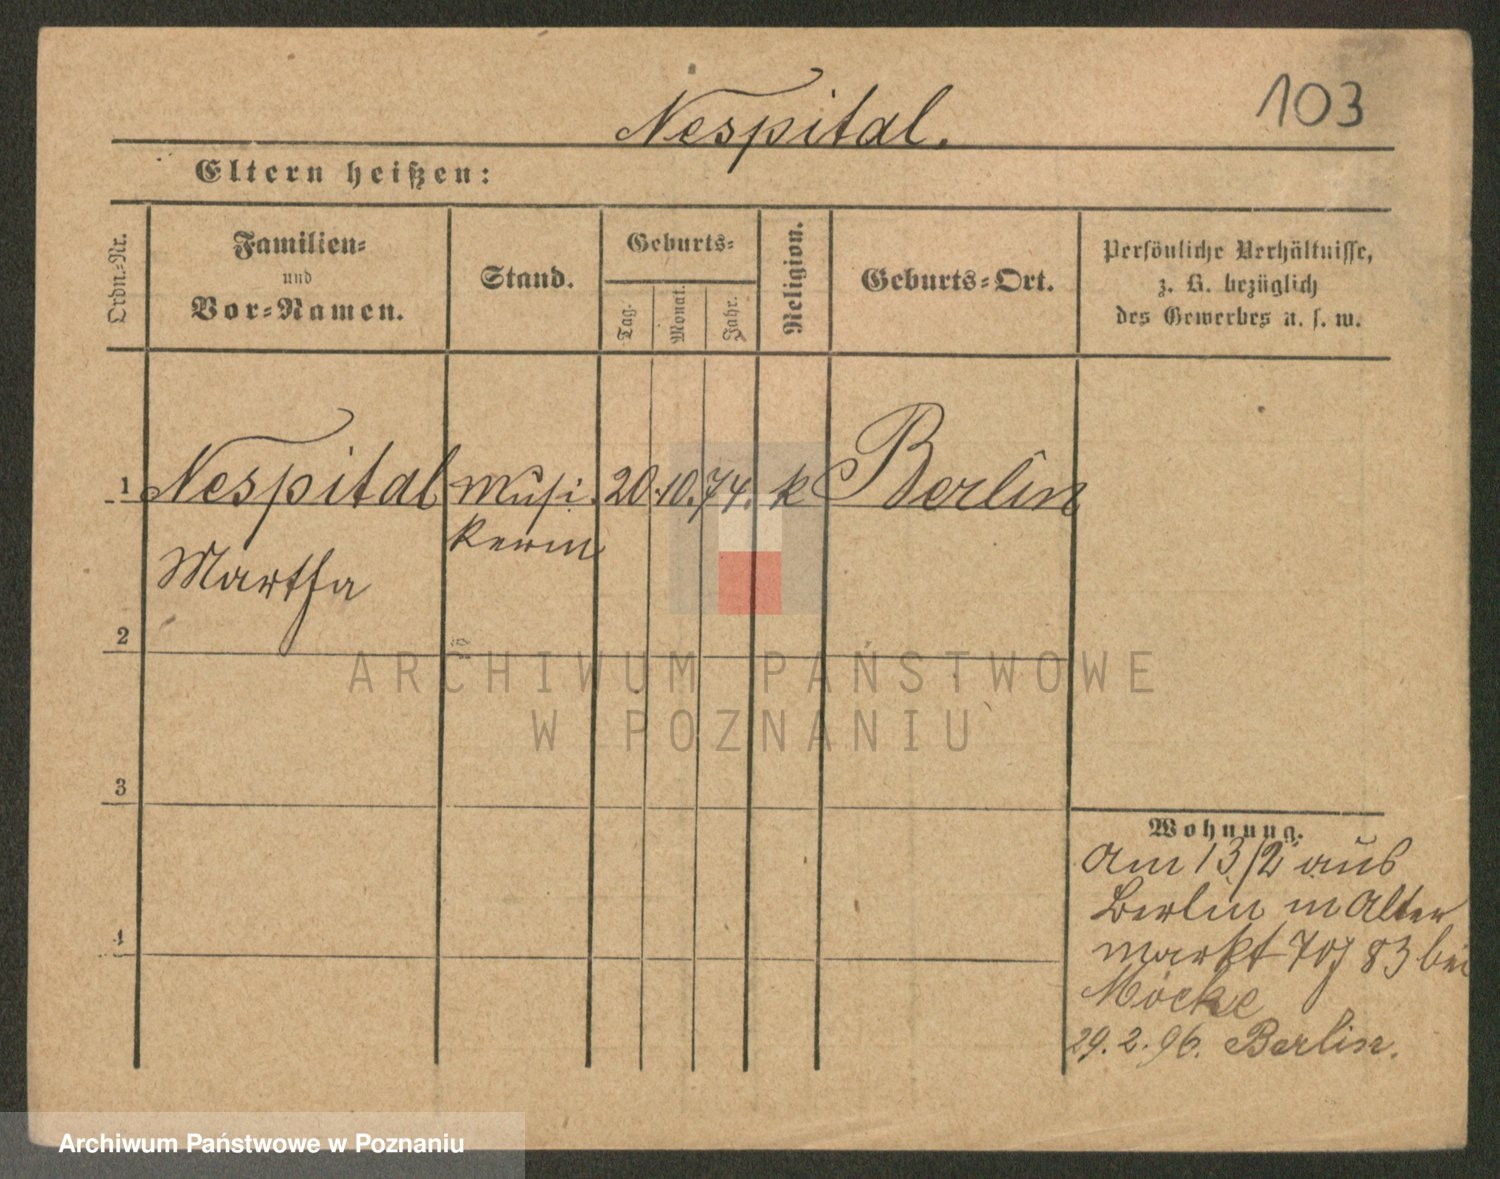 103
Nespital.
Eltern heißen:
Ordn.-Nr.
Familien- und Vor-Namen.
Stand.
Geburts-
Tag.
Monat.
Jahr.
Religion.
Geburts-Ort.
Persönliche Verhältnisse,
z. B. bezüglich
des Gewerbes u. s. w.
1 Nespital Musi- 20. 10. 74. k Berlin
kerin
Martha
2
3
4
Wohnung.
Am 13/2 aus
Berlin in Alter
markt 83 bei
Möcke
29. 2. 96. Berlin.
ARCHIWUM PAŃSTWOWE
W POZNANIU
Archiwum Państwowe w Poznaniu